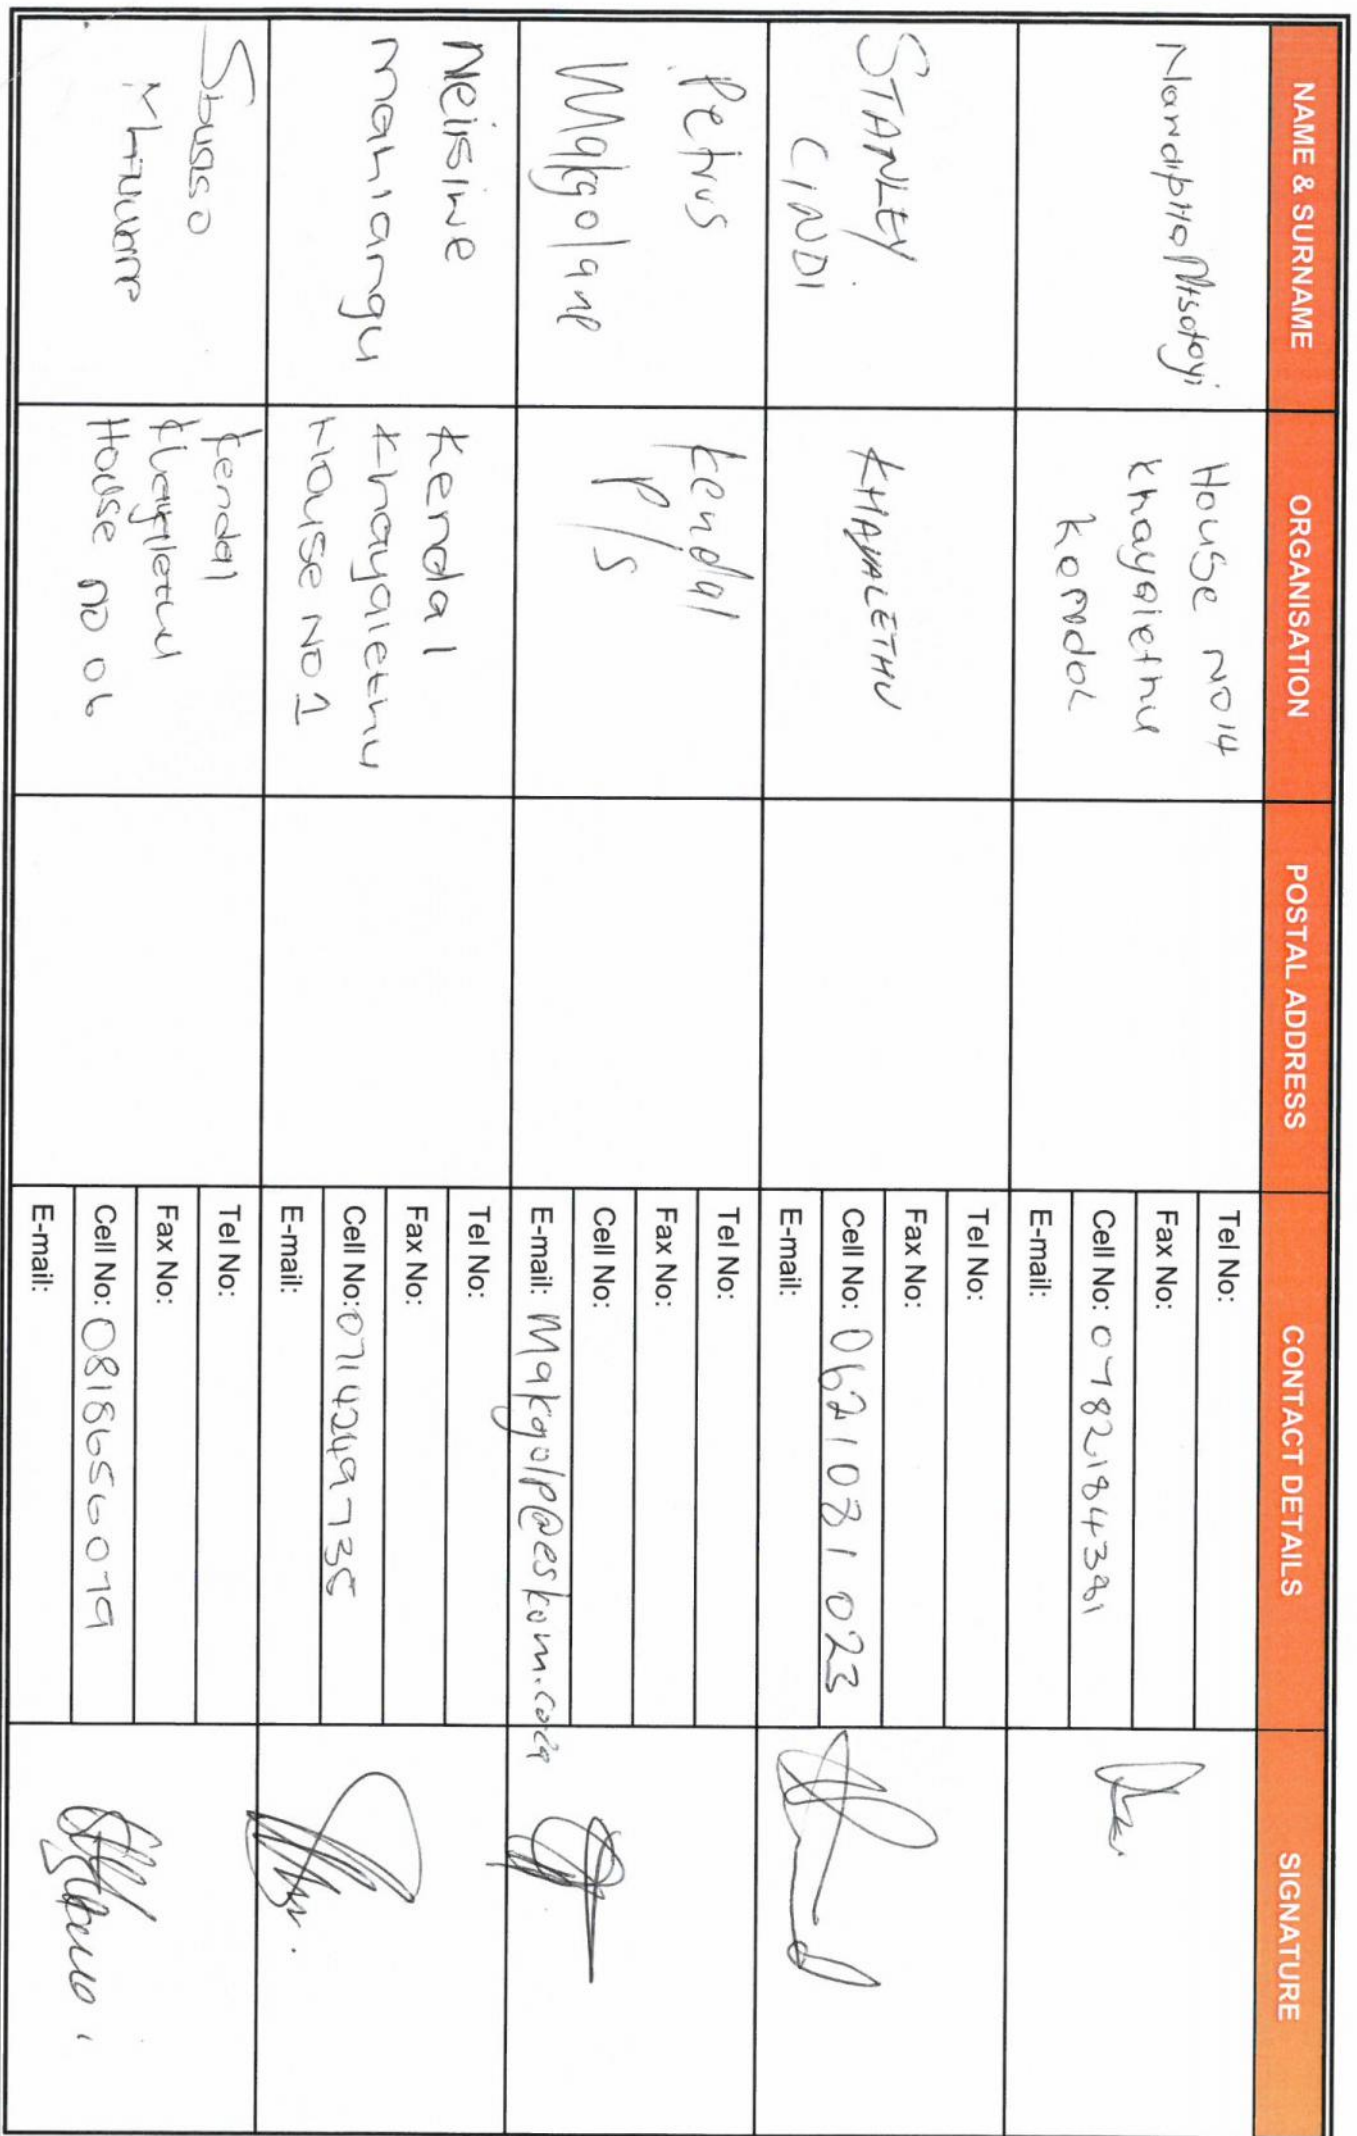 NAME & SURNAME
ORGANISATION
POSTAL ADDRESS
CONTACT DETAILS
SIGNATURE
House NO 14
Khayalethu
Kendal
Tel No:
Fax No:
Cell No: 0782184381
E-mail:
STANLEY
CINDI
KHAYALETHU
Tel No:
Fax No:
Cell No: 0621081 023
E-mail:
Petrus
Makgolane
Kendal
P/S
Tel No:
Fax No:
Cell No:
E-mail: Makgolp@eskom.co.za
Nelisiwe
mahlangu
Kendal
Khayalethu
House NO 1
Tel No:
Fax No:
Cell No: 0714249735
E-mail:
Sbusiso
Kendal
Khayalethu
House no 06
Tel No:
Fax No:
Cell No: 0818656079
E-mail: